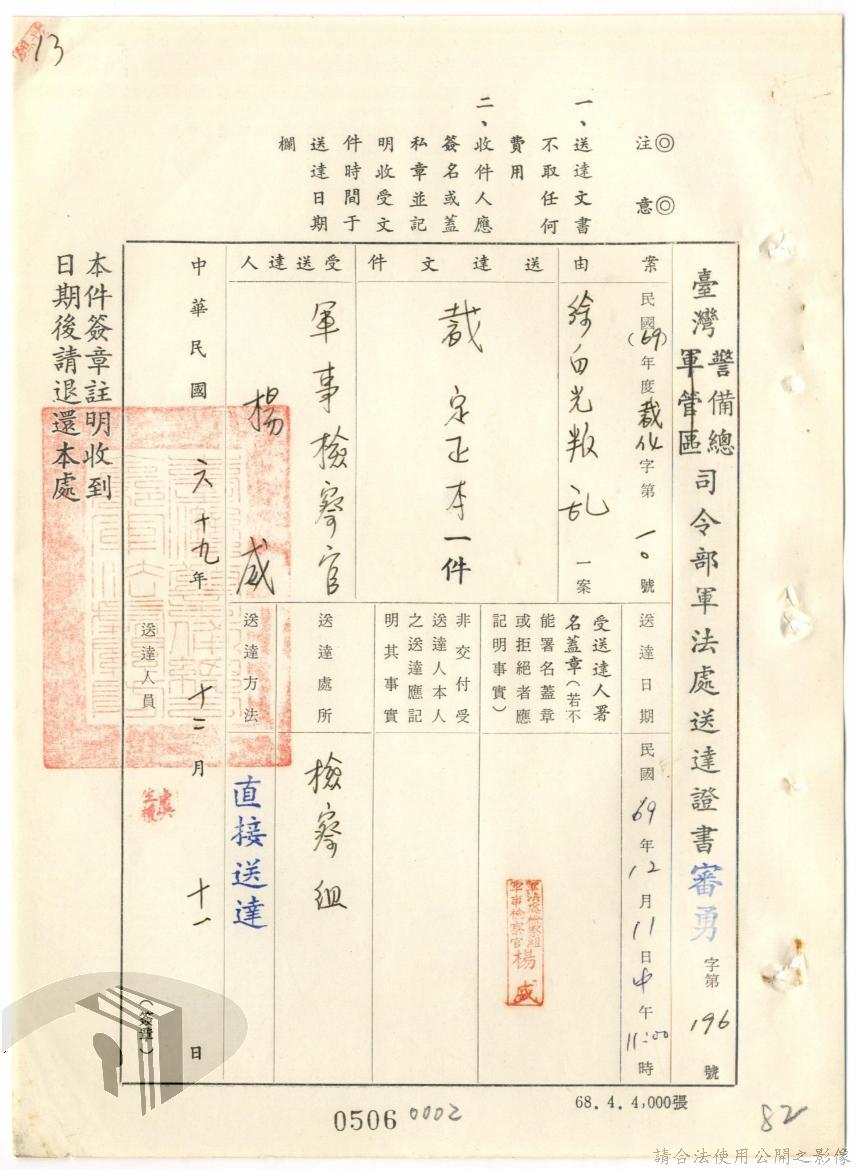 13
◎注意◎
一、送達文書
不取任何
費用
二、收件人應
簽名或蓋
私章並記
明收受文
件時間于
送達日期
欄
臺灣警備總軍管區司令部軍法處送達證書審勇字第196號
案由
民國(69)年度裁化字第一〇號
徐白光叛乱一案
送達文件
裁定正本一件
受送達人
軍事檢察官
楊威
送達日期
民國69年12月11日中午11:00時
受送達人署
名蓋章(若不
能署名蓋章
或拒絕者應
記明事實)
軍法處檢察組
軍事檢察官
楊威
非交付受
送達人本人
之送達應記
明其事實
送達處所
檢察組
送達方法
直接送達
中華民國六十九年十二月十一日
送達人員
(簽證)
本件簽章註明收到
日期後請退還本處
68.4.4,000張
0506 0002
82
請合法使用公開之影像